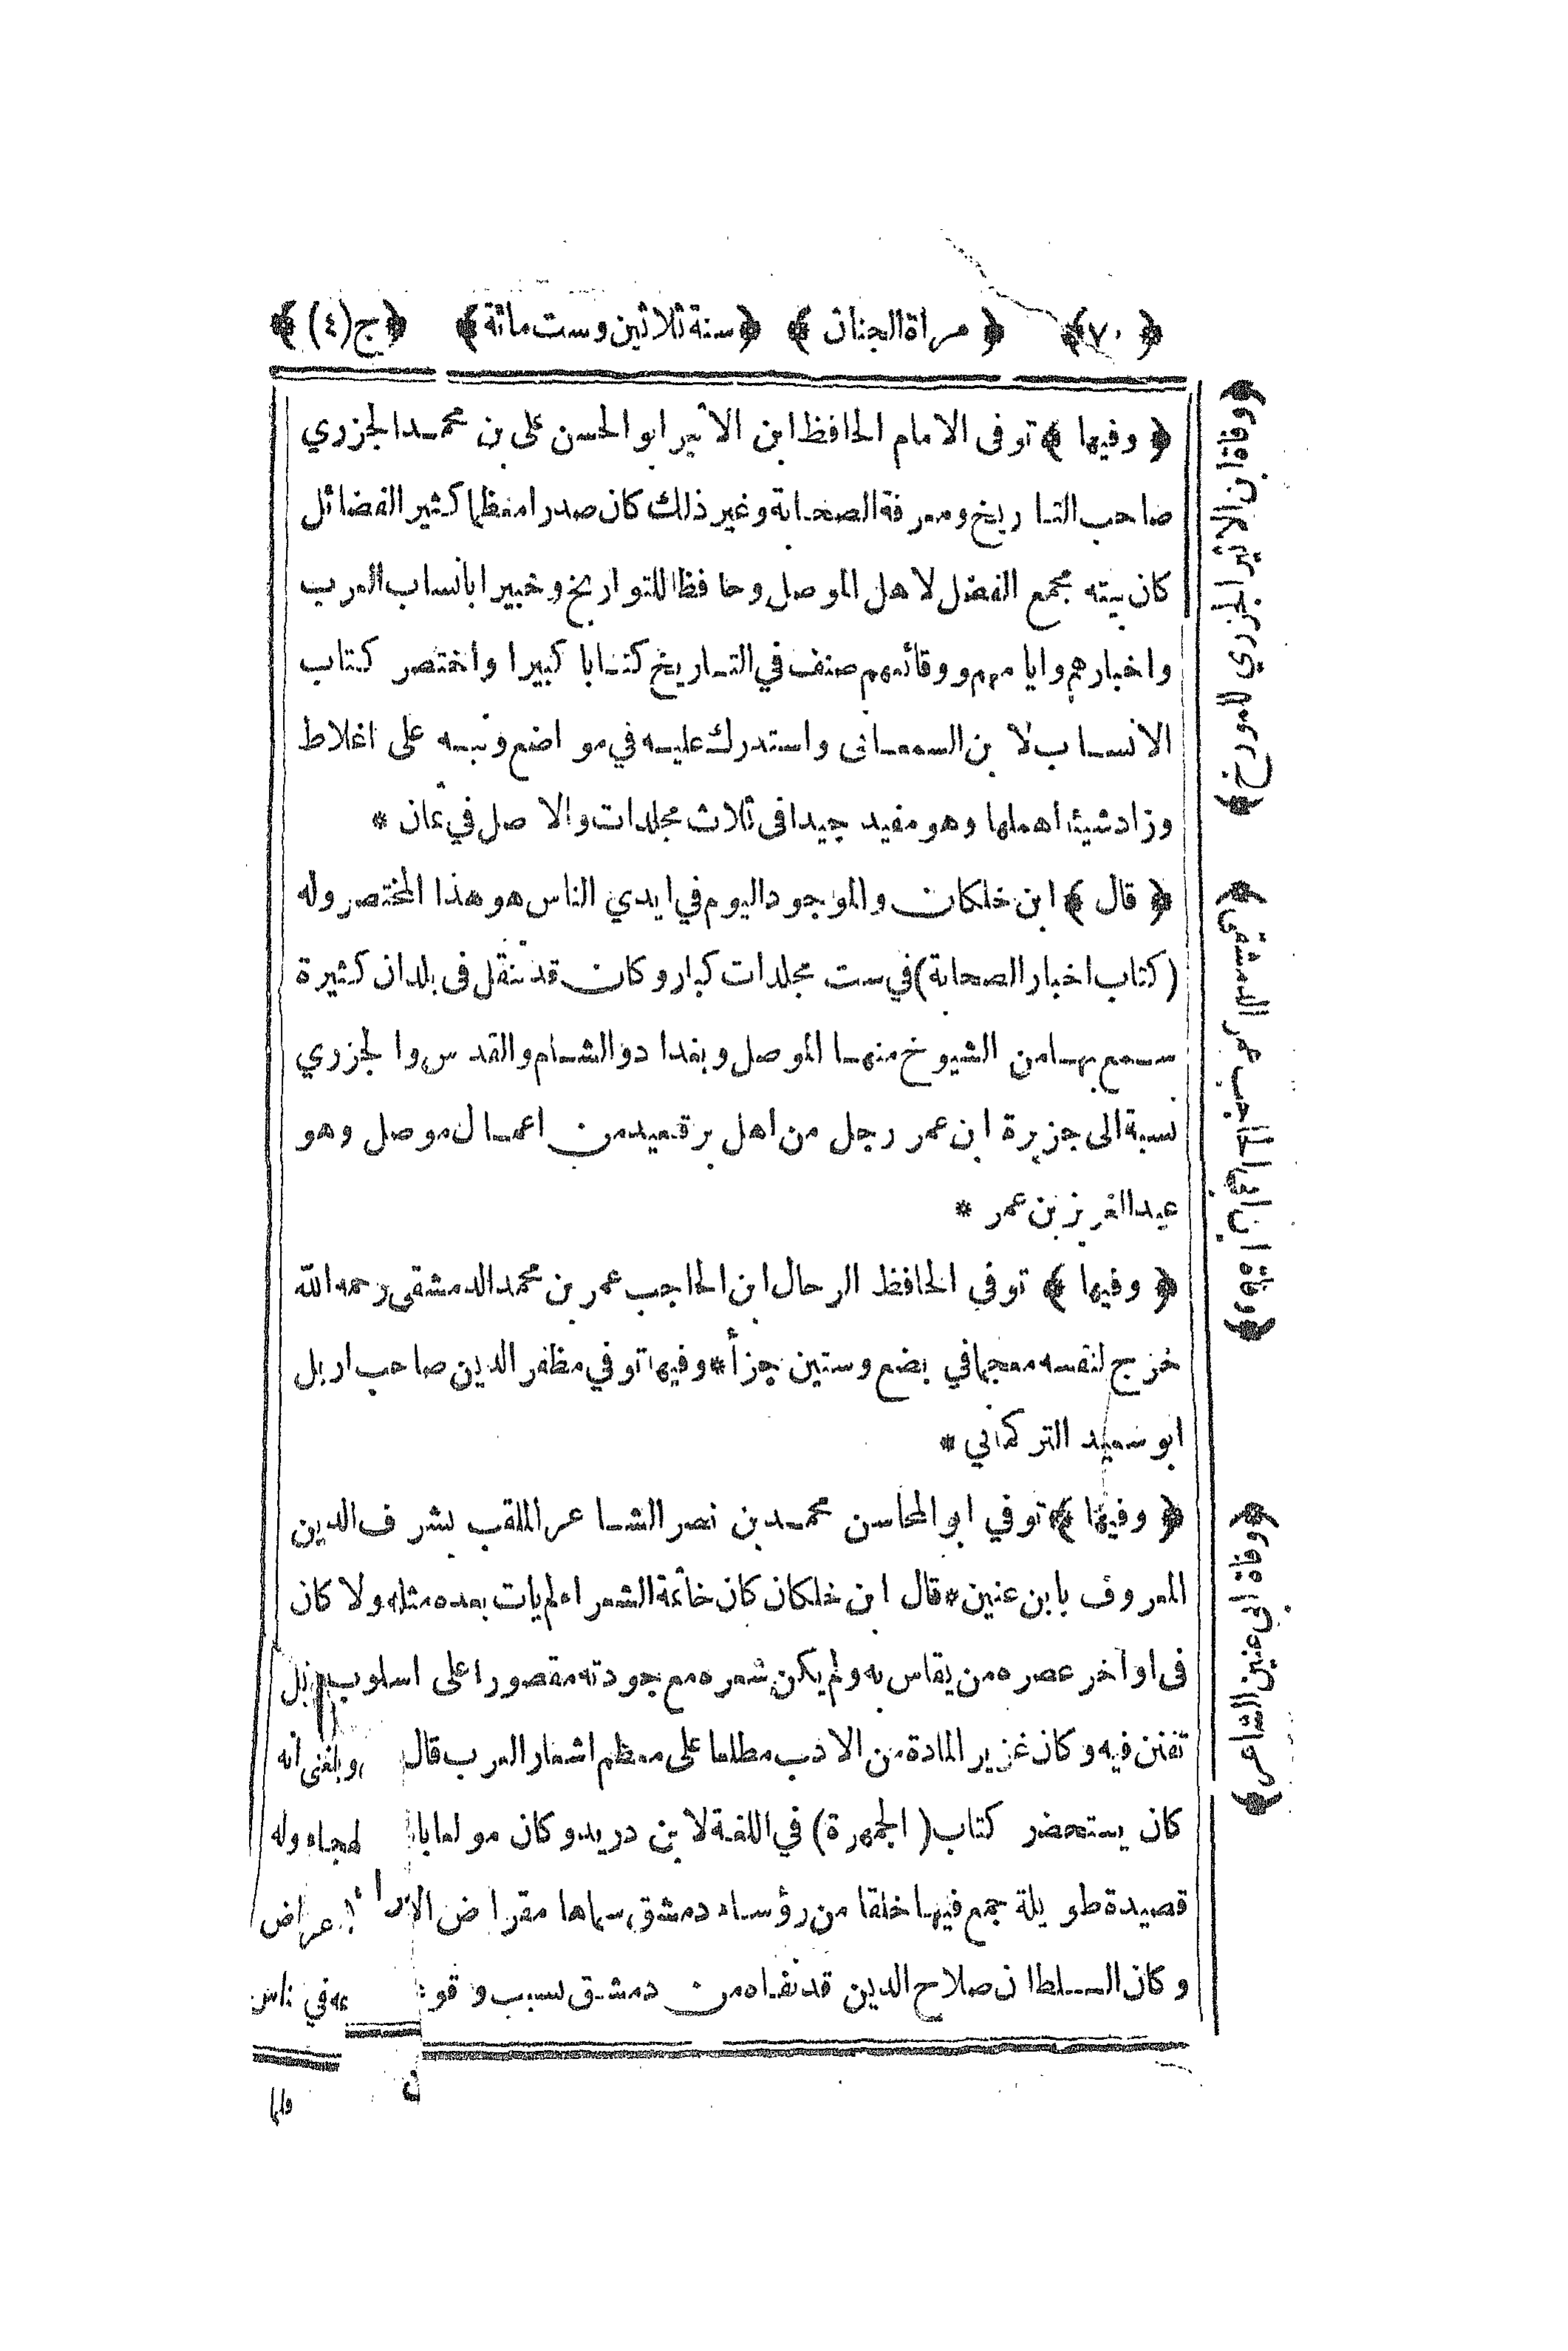 ﴿٧٠﴾ ﴿مرآة الجنان﴾ ﴿سنة ثلاثين وست مائة﴾ ﴿ج(٤)﴾
﴿ وفيها ﴾ توفى الامام الحافظ ابن الاثير ابو الحسن على بن محمد الجزري
صاحب التاريخ ومعرفة الصحابة وغير ذلك كان صدرا معظما كثير الفضائل
كان بيته مجمع الفضل لاهل الموصل وحافظا للتواريخ وخبيرا بانساب العرب
واخبارهم وايامهم ووقائعهم صنف في التاريخ كتابا كبيرا واختصر كتاب
الانساب لابن السمعانى واستدرك عليه في مواضع ونبه على اغلاط
وزاد شيئا اهملها وهو مفيد جيدا فى ثلاث مجلدات والاصل في ثمان *
﴿ قال ﴾ ابن خلكان والموجود اليوم في ايدي الناس هو هذا المختصر وله
(كتاب اخبار الصحابة) في ست مجلدات كبار وكان قد تنقل فى بلدان كثيرة
سمع بها من الشيوخ منها الموصل وبغداد والشام والقدس والجزري
نسبة الى جزيرة ابن عمر رجل من اهل برقعيد من اعمال موصل وهو
عبد العزيز بن عمر *
﴿ وفيها ﴾ توفي الحافظ الرحال ابن الحاجب عمر بن محمد الدمشقى رحمه الله
خرج لنفسه معجما في بضع وستين جزأ * وفيها توفي مظفر الدين صاحب اربل
ابو سعيد التركماني *
﴿ وفيها ﴾ توفي ابو المحاسن محمد بن نصر الشاعر الملقب بشرف الدين
المعروف بابن عنين * قال ابن خلكان كان خاتمة الشعراء لم يات بعده مثله ولا كان
فى اواخر عصره من يقاس به ولم يكن شعره مع جودته مقصورا على اسلوب بل
تفنن فيه وكان غزير المادة من الادب مطلعا على معظم اشعار العرب قال وبلغنى انه
كان يستحضر كتاب (الجمهرة) في اللغة لابن دريد وكان مولعا با لهجاء وله
قصيدة طويلة جمع فيها خلقا من رؤساء دمشق سماها مقراض الاعراض
وكان السلطان صلاح الدين قد نفاه من دمشق بسبب وقوعه في ناس
فلما
﴿وفاة ابن الاثير الجزري المورخ﴾
﴿وفاة ابن الحاجب عمر الدمشقى﴾
﴿وفاة ابن عنين الشاعر﴾